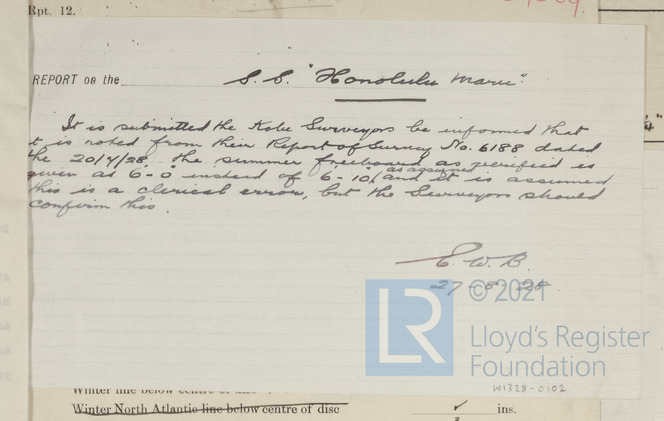 Rpt. 12.
REPORT on the S.S. "Honolulu Maru".
It is submitted the Kobe Surveyors be informed that
it is noted from their Report of Survey No. 6188 dated
the 20/7/28, the summer freeboard as verified is
given as 6-0 instead of 6-10, as assigned and it is assumed
this is a clerical error, but the Surveyors should
confirm this.
E.W.B.
27-8-28
© 2021
LR
Lloyd's Register
Foundation
W1328-0102
Winter line below centre of disc
Winter North Atlantic line below centre of disc ✓ ins.